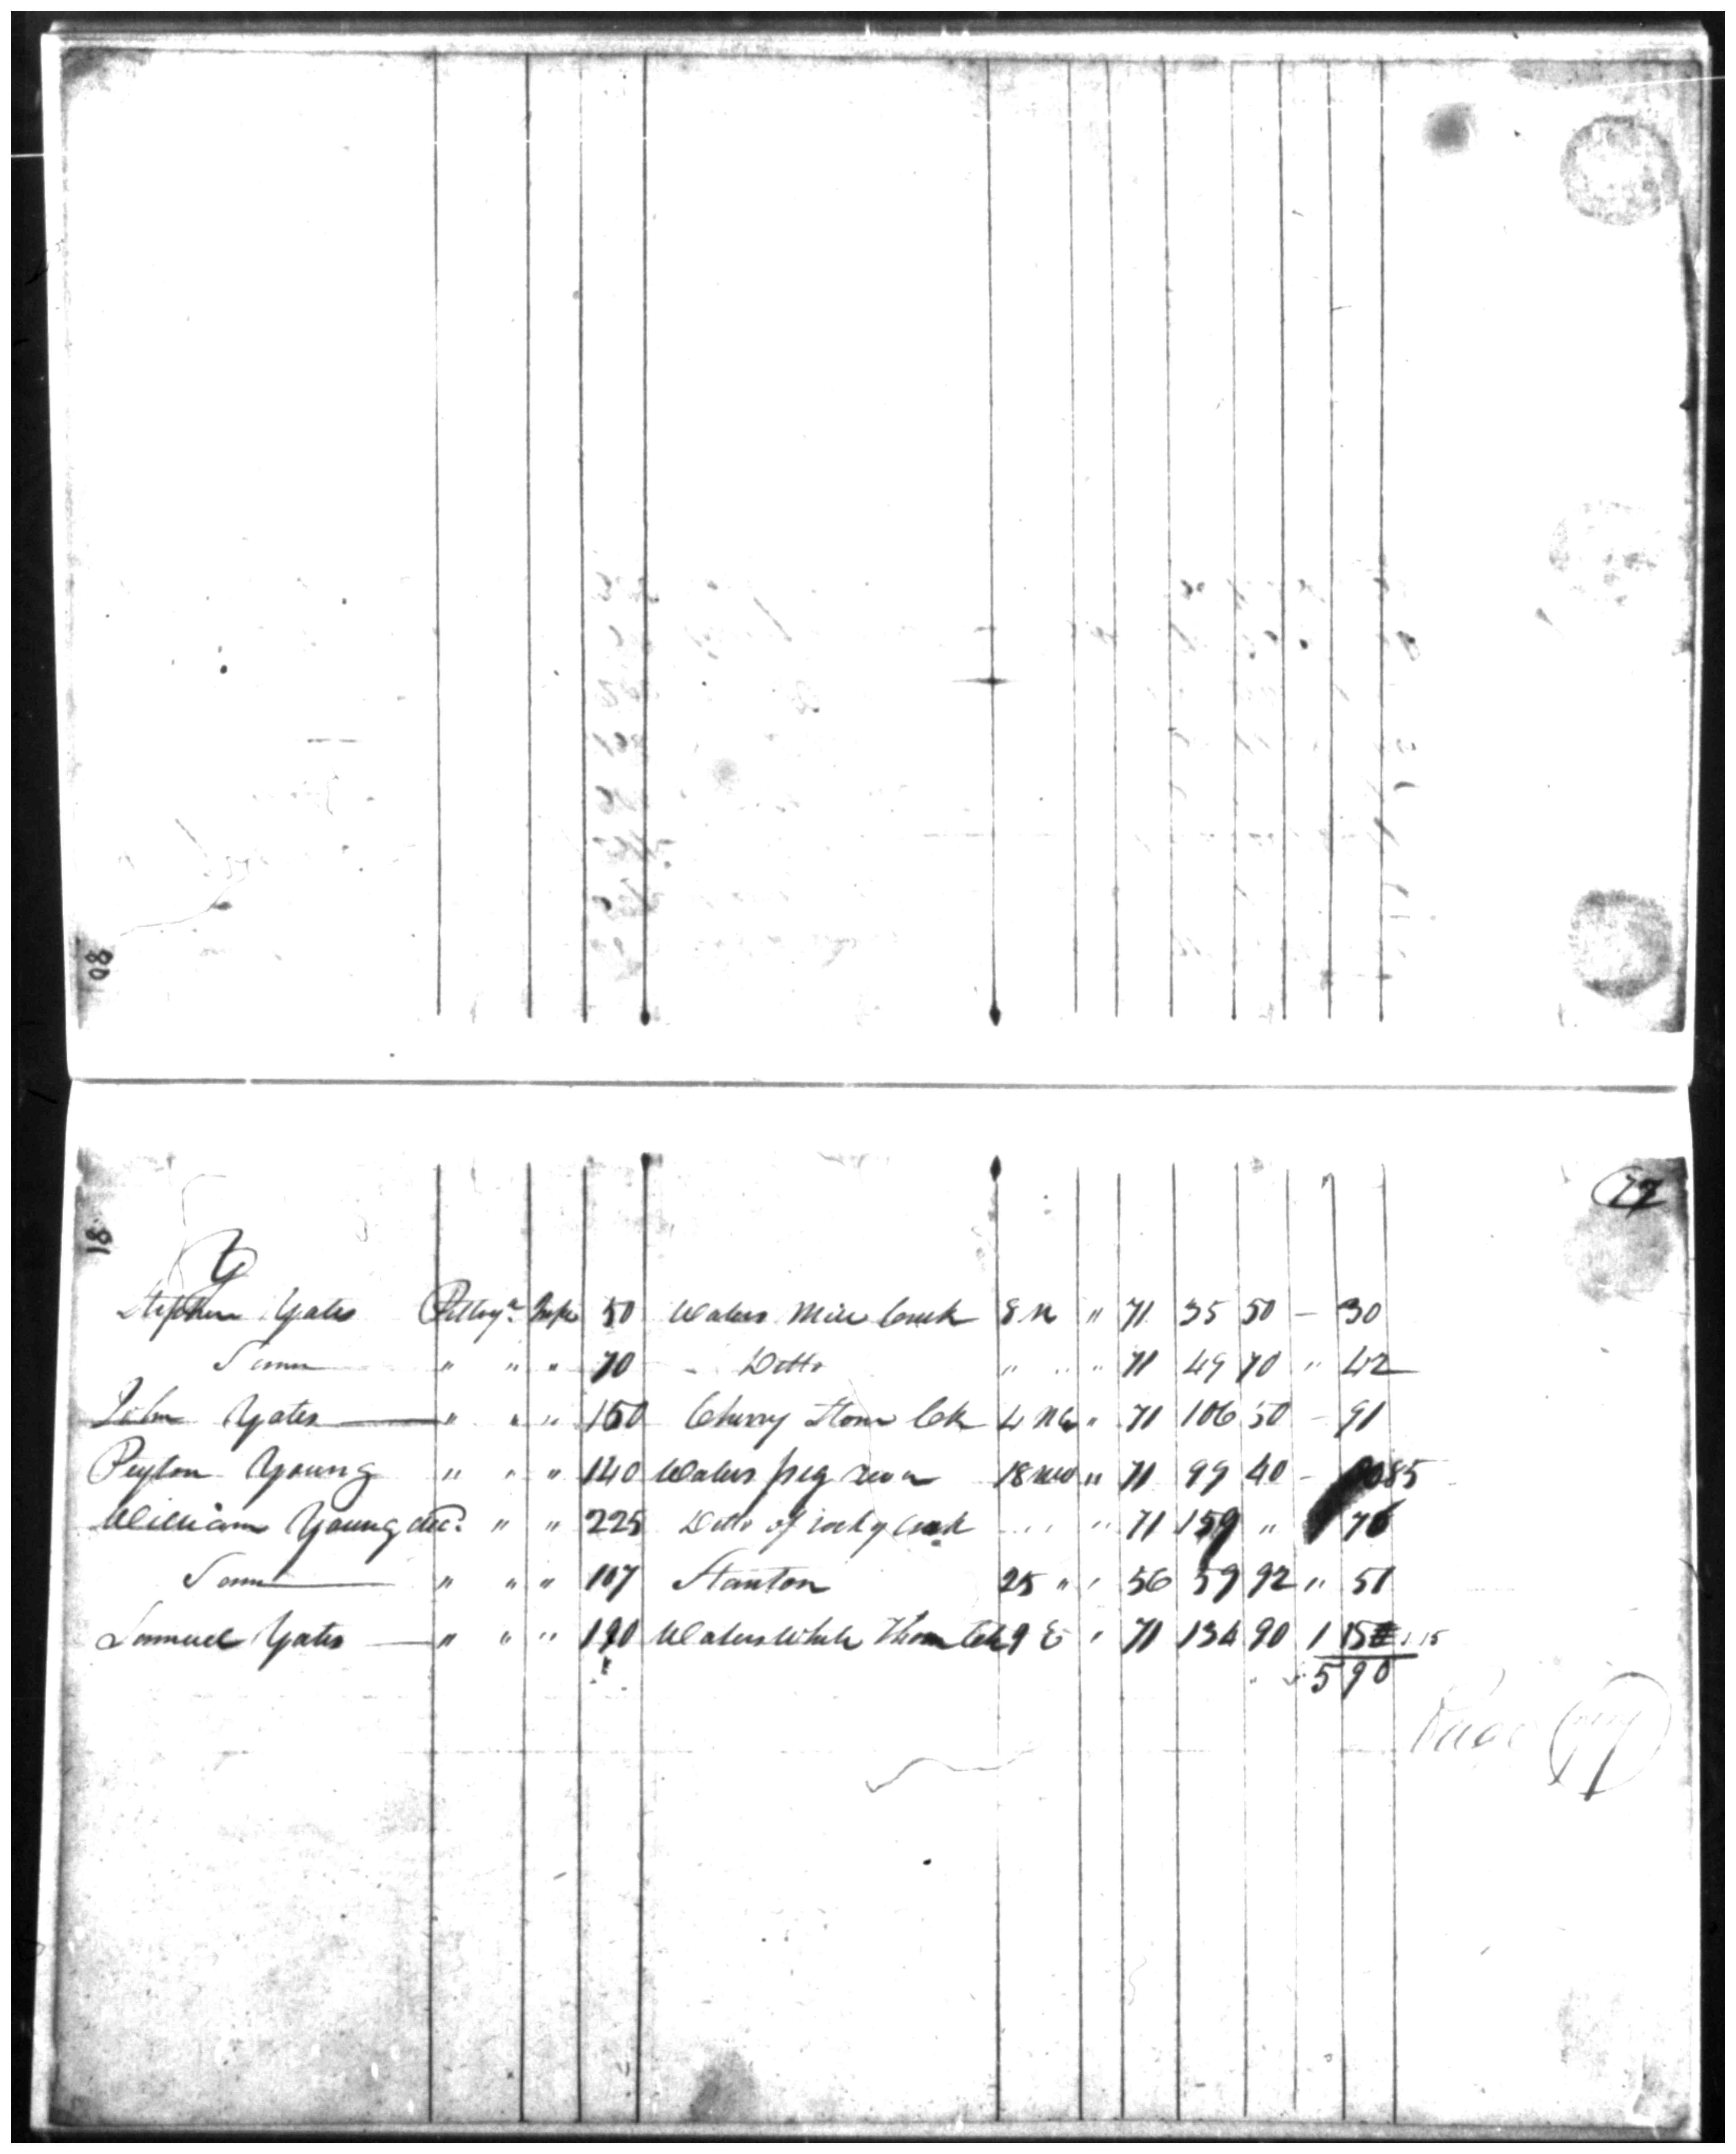 80
81
77
Y
Stephen Yates Pittsya fee 50 Waters Mill Creek 8 N " 71 35 50 - 30
Same " " " 70 - Ditto " " " 71 49 70 " 42
John Yates " " " 150 Cherry Stone Ck 4 NE " 71 106 50 - 91
Peyton Young " " " 140 Waters pig river 18 NW " 71 99 40 - 85
William Young decd " " 225 Ditto of rocky Creek " " " 71 159 " 1 76
Same " " " 107 Stanton 25 " " 56 59 92 " 51
Samuel Yates " " " 190 Waters White Thorn Ck 9 E " 71 134 90 1 15 1 15
5 90
Page